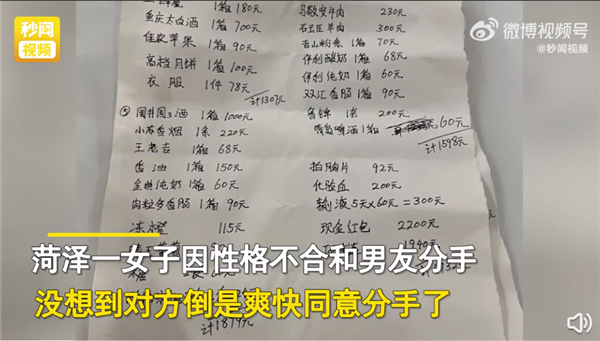 秒闻
视频
微博视频号
@秒闻视频
1箱 180元
重庆太白酒 1箱 700元
苹果 1箱 90元
高档月饼 1箱 100元
衣服 1件 78元
⑤ 国井国3酒 1箱 1000元
香烟 1条 220元
王老吉 1箱 68元
香油 1箱 150元
金典纯奶 1箱 60元
肉粒多香肠 1箱 90元
冻橙 115元
糖
计1879元
牛肉 230元
羊肉 300元
粉条 1箱 70元
伊利酸奶 1箱 68元
伊利纯奶 1箱 60元
双汇香肠 1箱 90元
鲁锦 200元
青岛啤酒 1箱 60元
计1598元
拍胸片 92元
化验血 200元
输液5天x60元=300元
现金红包 2200元
1940元
菏泽一女子因性格不合和男友分手
没想到对方倒是爽快同意分手了